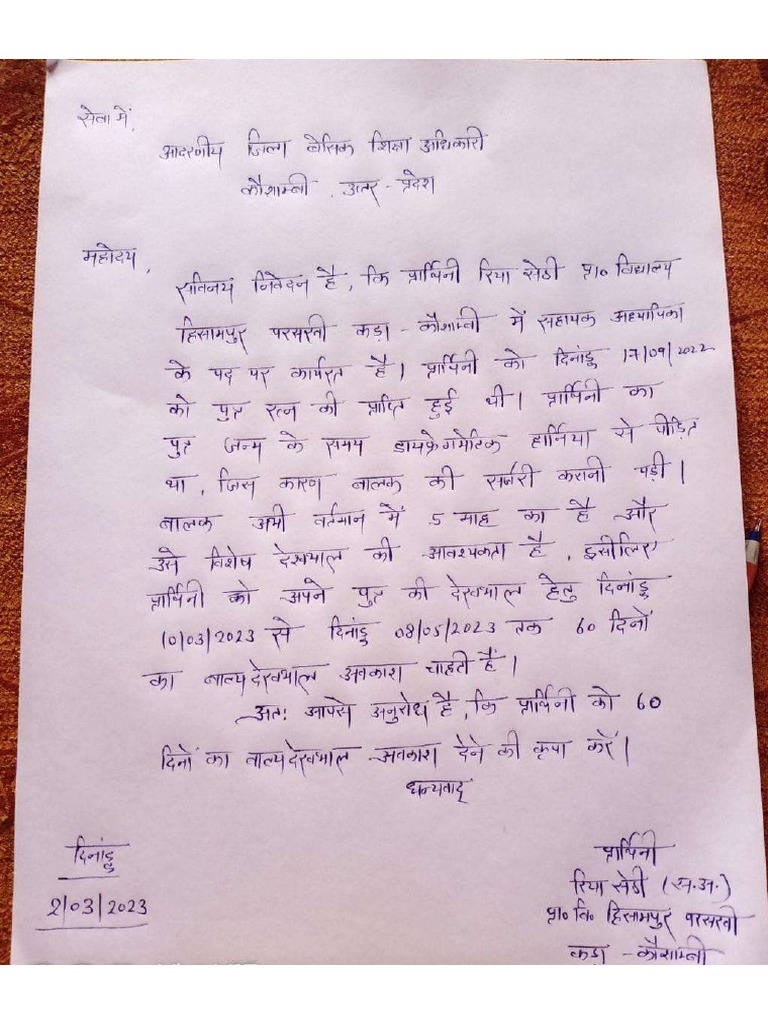 सेवा में,
आदरणीय जिला बेसिक शिक्षा अधिकारी
कौशाम्बी, उत्तर-प्रदेश
महोदय,
सविनय निवेदन है, कि प्रार्थिनी रिया सेठी प्रा० विद्यालय
हिसामपुर परसखी कड़ा-कौशाम्बी में सहायक अध्यापिका
के पद पर कार्यरत है। प्रार्थिनी को दिनांङ्क 17/09/2022
को पुत्र रत्न की प्राप्ति हुई थी। प्रार्थिनी का
पुत्र जन्म के समय डायफ्रेगमेटिक हार्निया से पीड़ित
था, जिस कारण बालक की सर्जरी करानी पड़ी।
बालक अभी वर्तमान में 5 माह का है और
उसे विशेष देखभाल की आवश्यकता है, इसीलिए
प्रार्थिनी को अपने पुत्र की देखभाल हेतु दिनांङ्क
10/03/2023 से दिनांङ्क 08/05/2023 तक 60 दिनों
का बाल्यदेखभाल अवकाश चाहती हैं।
अतः आपसे अनुरोध है, कि प्रार्थिनी को 60
दिनों का बाल्यदेखभाल अवकाश देने की कृपा करें।
धन्यवाद्
दिनांङ्क
2/03/2023
प्रार्थिनी
रिया सेठी (स.अ.)
प्रा० वि० हिसामपुर परसखी
कड़ा-कौशाम्बी